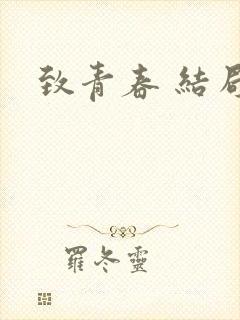 致青春 結局
羅冬靈